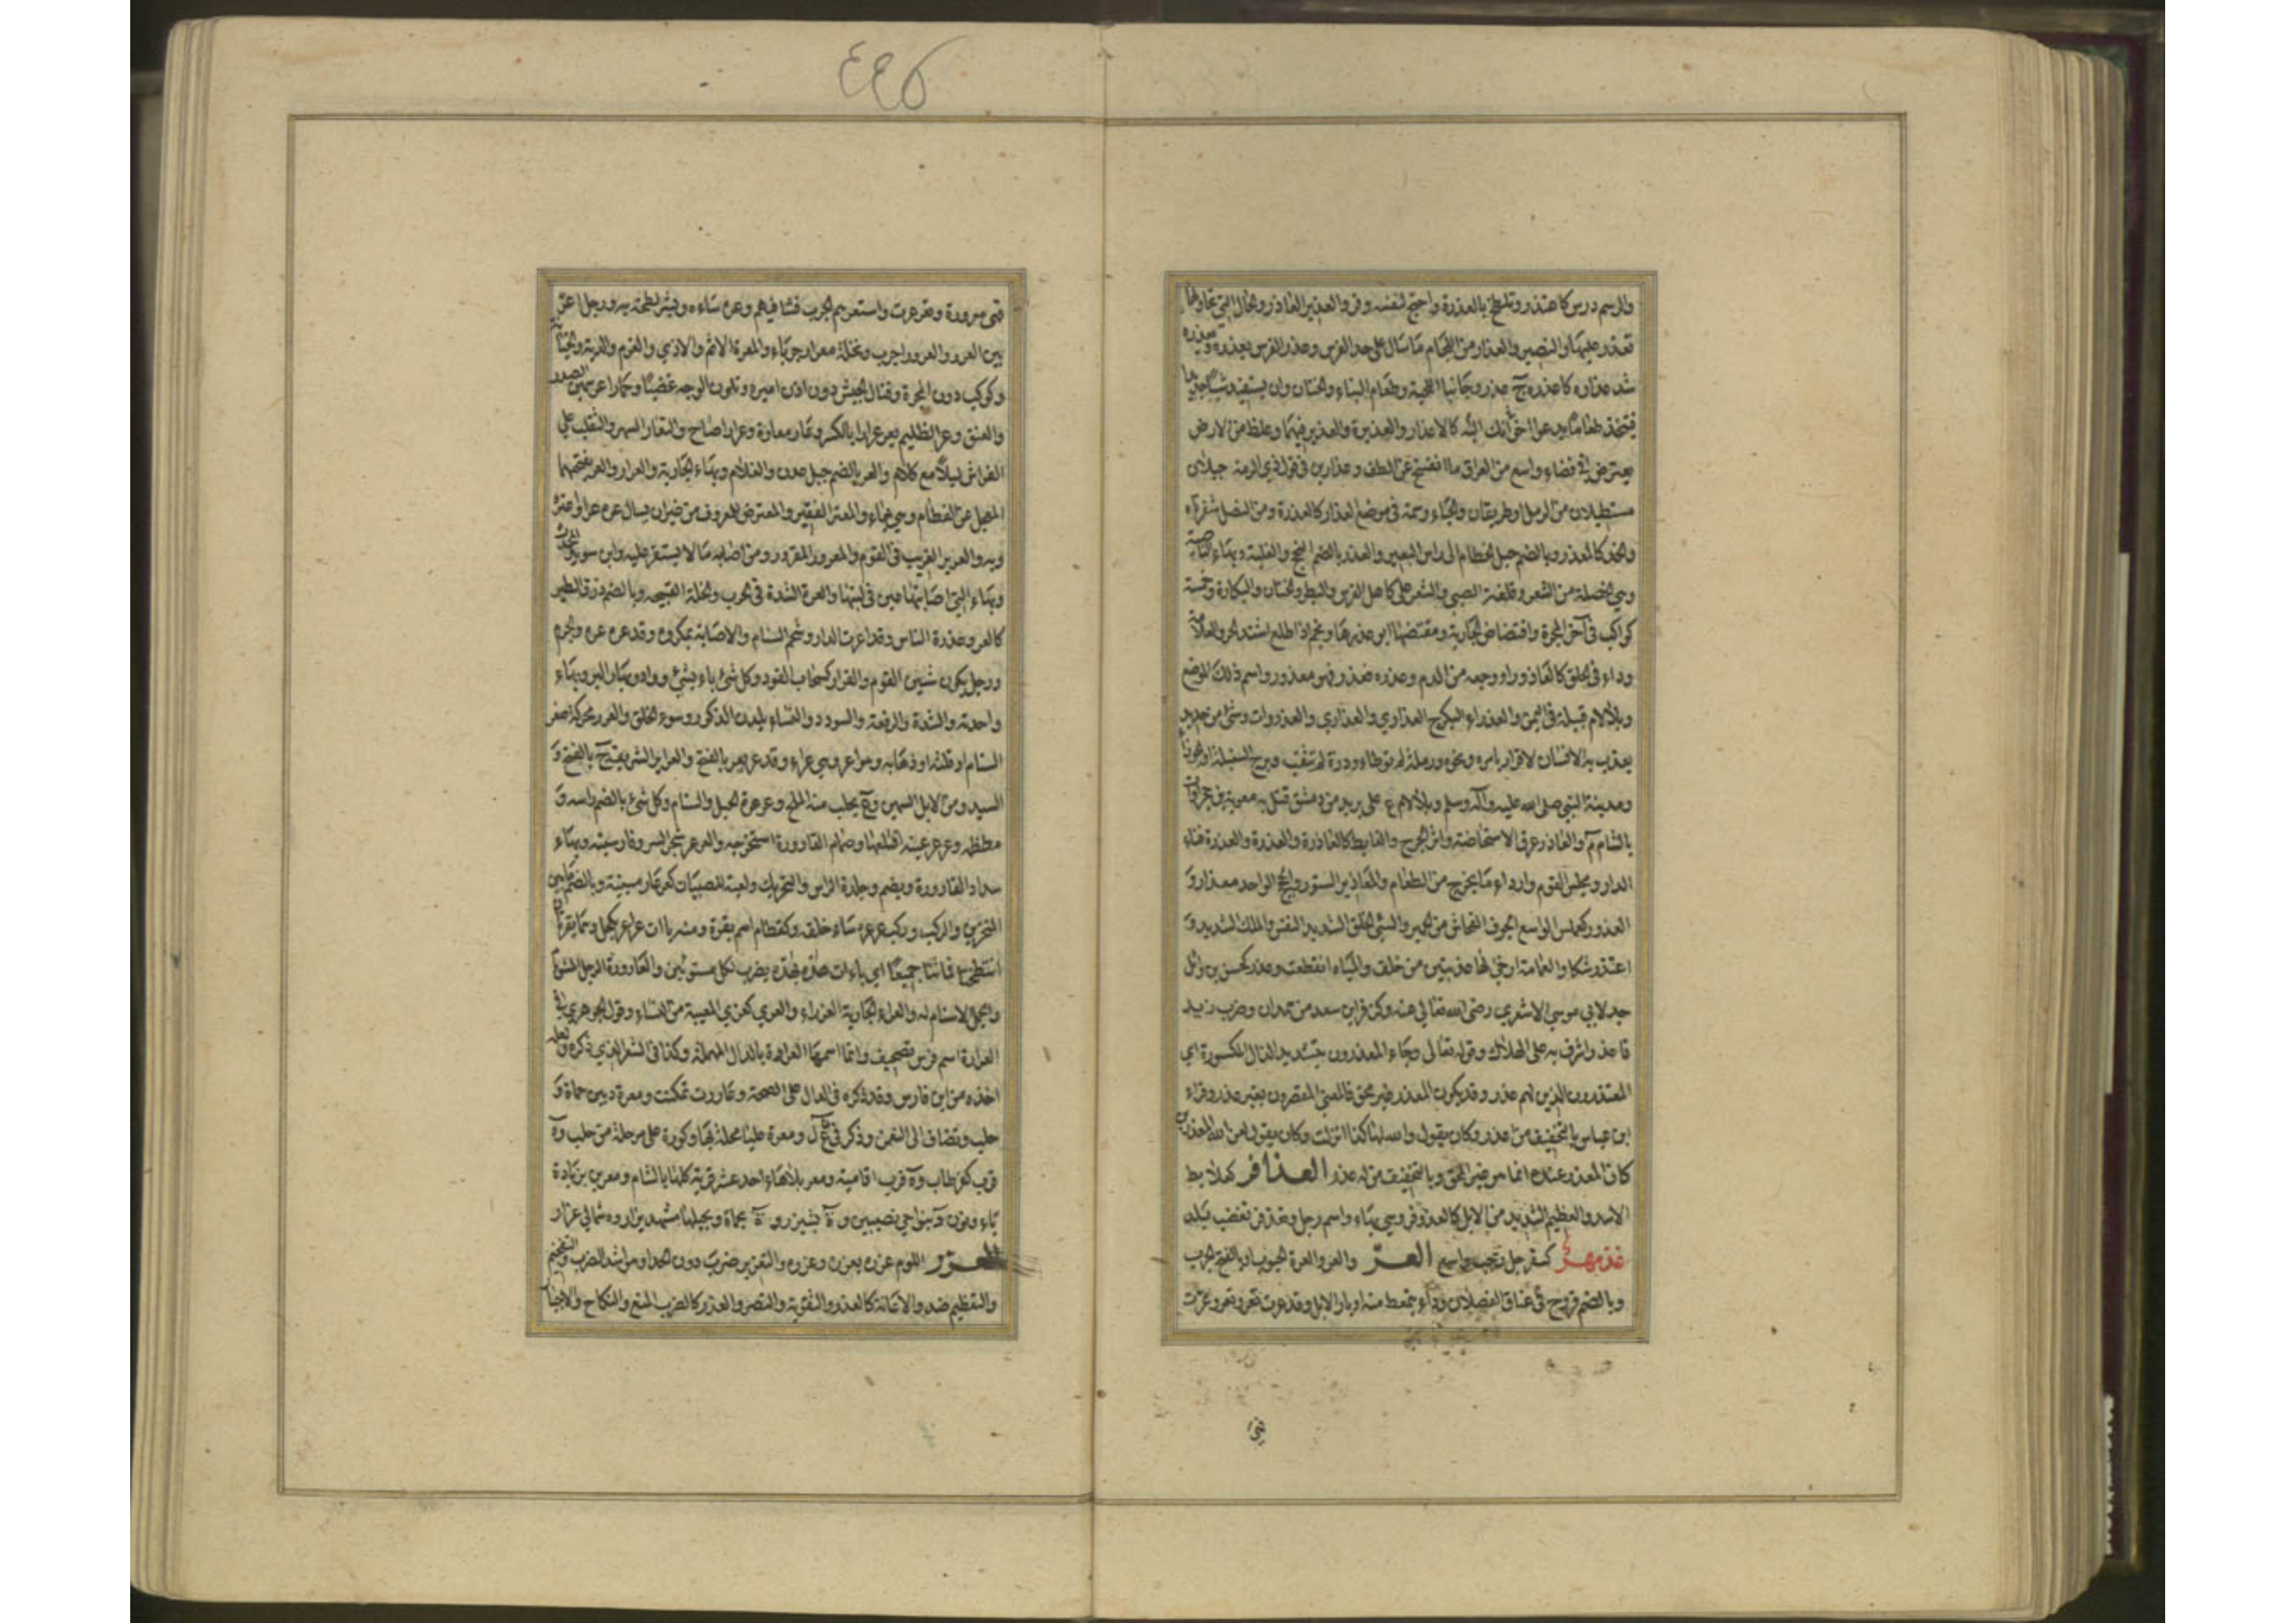 ٤٤٥
والرسم درس كاعتذر وتلطخ بالعذرة واحتج لنفسه وفر والعذير العاذر والحال التي تحاولها
تعذر عليها والنصير والعذار من اللجام ما سال على خد الفرس وعذر الفرس يعذره ويعذره
شد عذاره كاعذره ج عذر وجانبا اللحية وطعام البناء والختان وان يستفيد شيا جديدا
فيتخذ طعاما يدعو اخوانك اليه كالاعذار والعذيرة والعذير فيهما وغلظ من الارض
يعترض في فضاء واسع من العراق ما انفسح عن الطف وعذارين في قول ذي الرمة حبلان
مستطيلان من الرمل او طريقان والحياء وسمة في موضع العذار كالعذرة ومن النصل شفرتاه
والخد كالمعذر وبالضم حبل الخطام الى راس البعير والعذر بالضم النجح والغلبة وبهاء الناصية
وهي الخصلة من الشعر وقلفة الصبي والشعر على كاهل الفرس والبظر والختان والبكارة وخمسة
كواكب في آخر المجرة وافتضاض الجارية ومفتضها ابو عذرها ونجم اذا طلع اشتد الحر والعلامة
وداء في الحلق كالعاذور او وجعه من الدم وعذره فعذر فهو معذور واسم ذلك الموضع
وبلالام قبيلة في اليمن والعذراء البكر ج العذاري والعذارى والعذراوات وشئ من حديد
يعذب به الانسان لاقرار بامر ونحوه ورملة لم توطأ ودرة لم تثقب وبرج السنبلة او الجوزا
ومدينة النبي صلى الله عليه وآله وسلم وبلالام ع على بريد من دمشق قتل به معوية بن حجر او ة
بالشام م والعاذر عرق الاستحاضة واثر الجرح والغايط كالعاذرة والعذرة والعذرة فناء
الدار ومجلس القوم واردا ما يخرج من الطعام والمعاذير الستور والحجج الواحد معذار و
العذور كعملس الواسع الجوف الفحاش من الحمير والسئ الخلق الشديد النفس والملك الشديد و
اعتذر شكا والعمامة ارخى لها عذبتين من خلف والمياه انقطعت وعذر كحسن بن وائل
جد لابي موسى الاشعري رضى الله تعالى عنه وكزفر ابن سعد من همدان وضرب زيد
فاعذر اشرف به على الهلاك وقوله تعالى وجاء المعذرون بتشديد الذال المكسورة اي
المعتذرون الذين لهم عذر وقد يكون المعذر غير محق فالمعنى المقصرون بغير عذر وقراء
ابن عباس بالتخفيف من اعذر وكان يقول والله لهكذا انزلت وكان يقول لعن الله المعذرين
كان المعذر عنده انما هو غير المحق وبالتخفيف من له عذر العذافر كعلابط
الاسد والعظيم الشديد من الابل كالعذوفر وهي بهاء واسم رجل وتعذفر تغضب بلد
عذمهر كسفرجل رحب واسع العرّ والعر والعرة الجرب او بالفتح الجرب
وبالضم قروح في اعناق الفصلان وداء يتمعط منه اوبار الابل وقد عرت تعر وتعر وعرت
فهي معرورة وتعرعرت واستعرهم الجرب فشا فيهم وعره ساءه وبشر لطخه به ورجل اعر
بين العرر والعرور اجرب ونخلة معرار جرباء والمعرة الاثم والاذي والغرم والدية والخيانة
وكوكب دون المجرة وقتال الجيش دون اذن اميره وتلون الوجه غضبا وحمار اعر سمين الصدر
والعنق وعر الظليم يعر عرارا بالكسر وعار معارة وعرارا صاح والتعار السهر والتقلب على
الفراش ليلا مع كلام والعر بالضم جبل عدن والغلام وبهاء الجارية والعرار والعر بفتحهما
المعجل عن الفطام وهي بهاء والمعتر الفقير والمعترض للمعروف من غير ان يسال عره عرا واعتره
وبه والعرير الغريب في القوم والمعرور المقرور ومن اصابه ما لا يستقر عليه وابن سويد المحدث
وبهاء التي اصابتها عين في لبنها والعرة الشدة في الحرب والخلة القبيحة وبالضم ذرق الطير
كالعر وعذرة الناس وقد اعرت الدار وشحم السنام والاصابة بمكروه وقد عره عره والجرم
ورجل يكون شين القوم والعرار كسحاب القود وكل شئ باء بشئ وواد وبهار البر وبهاء
واحدته والشدة والرفعة والسودد والنساء يلدن الذكور وسوء الخلق والعرر محركة صغر
السنام او قلته او ذهابه وهو اعر وهي عراء وقد عر يعر بالفتح والعراعر الشريف ج بالفتح و
السيد ومن الابل السمين وع يجلب منه الملح وعرعرة الجبل والسنام وكل شئ بالضم راسه و
معظمه وعرعر عينه اقتلعها وصمام القارورة استخرجه والعرعر شجر السرو فارسيته وبهاء
سداد القارورة ويضم وجلدة الراس والتحريك ولعبة للصبيان كعرعار مبنية وبالضم ما بين
المنخرين والركب وركب عرعره ساء خلقه وكقطام اسم بقرة ومنه باءت عرار بكحل وهما بقرتان
انتطحتا فماتتا جميعا اي باءت هذه بهذه يضرب لكل مستويين والعارورة الرجل المشوم
والجمل لا سنام له والعراء الجارية العذراء والعرى كعزى المعيبة من النساء وقول الجوهري في
العرارة اسم فرس تصحيف وانما اسمها العرادة بالدال المهملة وكذا في الشعر الذي ذكره ولعله
اخذه من ابن فارس وقد ذكره في الدال على الصحة وعاررت تمكنت ومعرة د بين حماة و
حلب وتضاف الى النعمن وذكر في ن ع ل ومعرة عليا محلة بها وكورة على مرحلة من حلب وة
قرب كفرطاب وة قرب افامية ومعر بلاهاء احد عشر قرية كلها بالشام ومعرين بزيادة
ياء ونون د بنواحي نصيبين وة بشيزر وة بحماة وبجبلها مشهد يزار وة شمالي عزاز
العزر اللوم عزره يعزره وعزره والتعزير ضرب دون الحد او هو اشد الضرب والتفخيم
والتعظيم ضد والاعانة كالعزر والتقوية والنصر والعزر كالضرب المنع والنكاح والاجبار
فهى